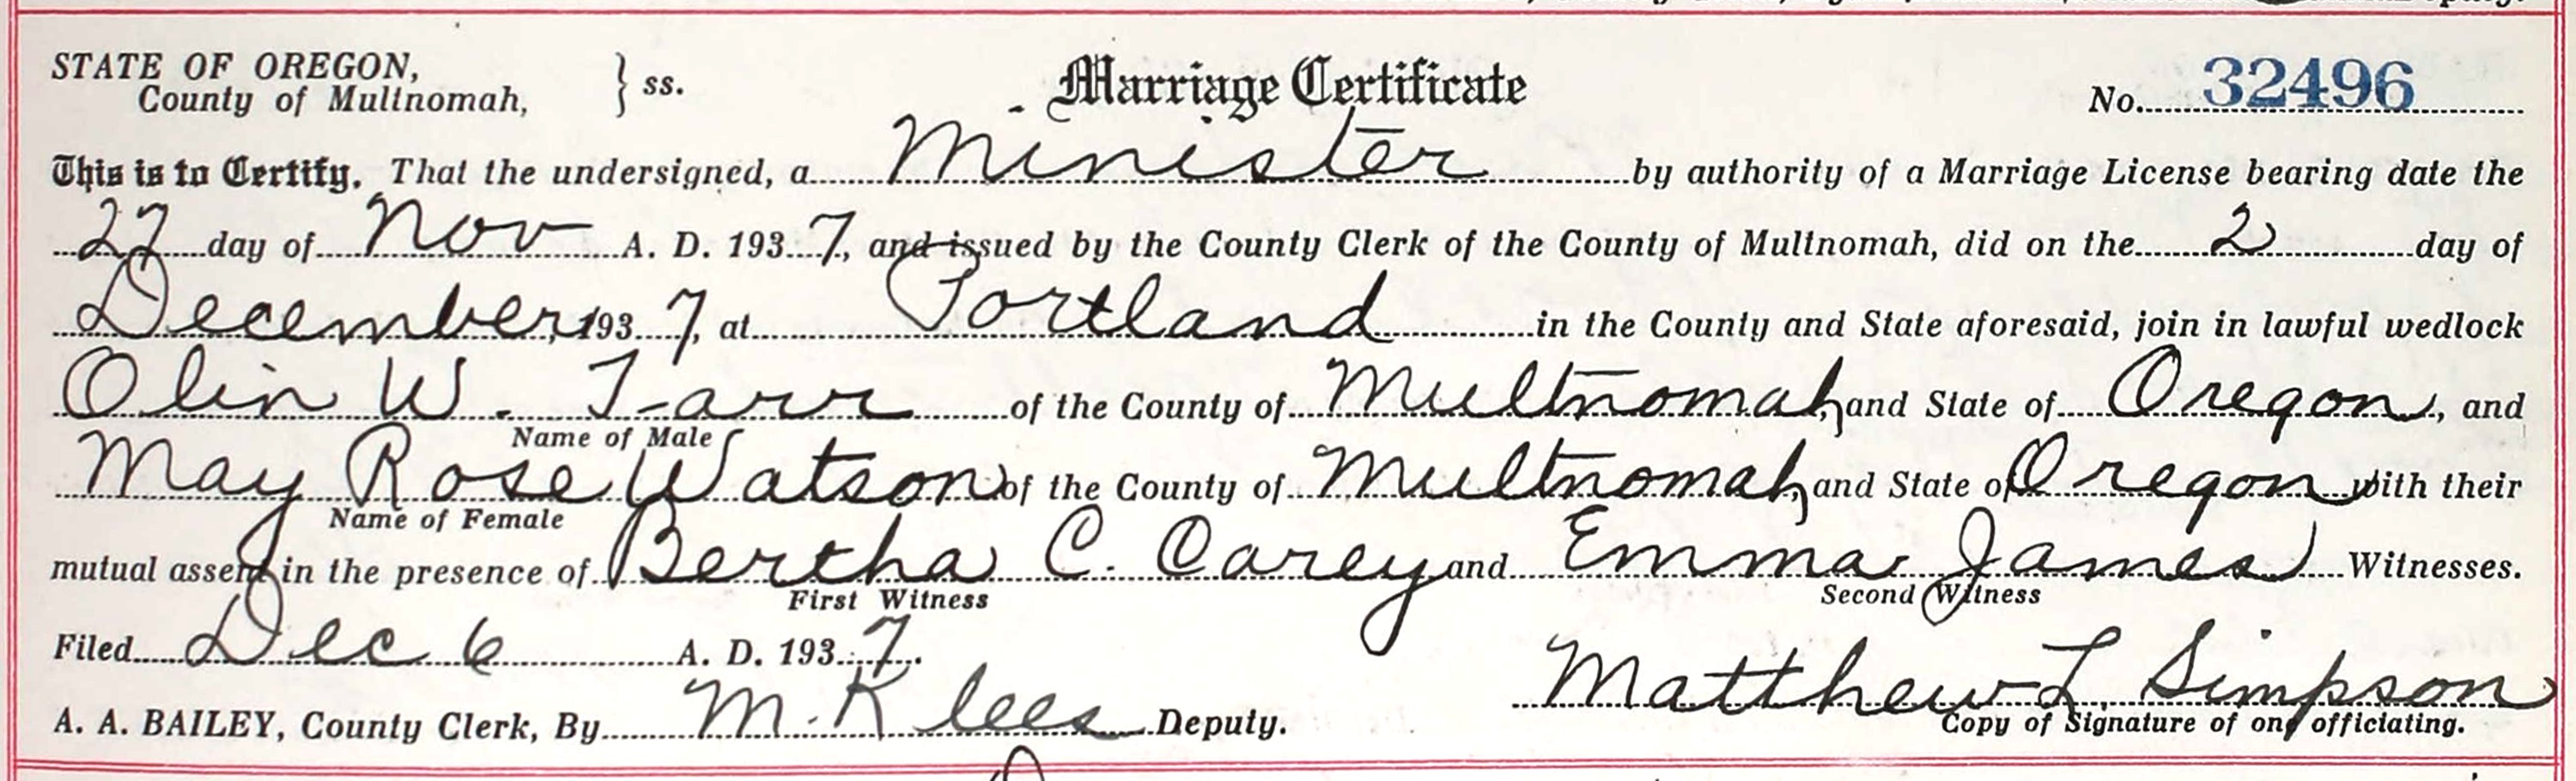 STATE OF OREGON, } ss. Marriage Certificate No. 32496
County of Multnomah,
This is to Certify, That the undersigned, a Minister by authority of a Marriage License bearing date the
27 day of Nov A. D. 1937, and issued by the County Clerk of the County of Multnomah, did on the 2 day of
December, 1937, at Portland in the County and State aforesaid, join in lawful wedlock
Olin W. Tarr of the County of Multnomah, and State of Oregon, and
Name of Male
May Rose Watson of the County of Multnomah, and State of Oregon with their
Name of Female
mutual assent in the presence of Bertha C. Carey and Emma James Witnesses.
First Witness Second Witness
Filed Dec 6 A. D. 1937.
Matthew L Simpson
A. A. BAILEY, County Clerk, By M. Klees Deputy. Copy of Signature of one officiating.